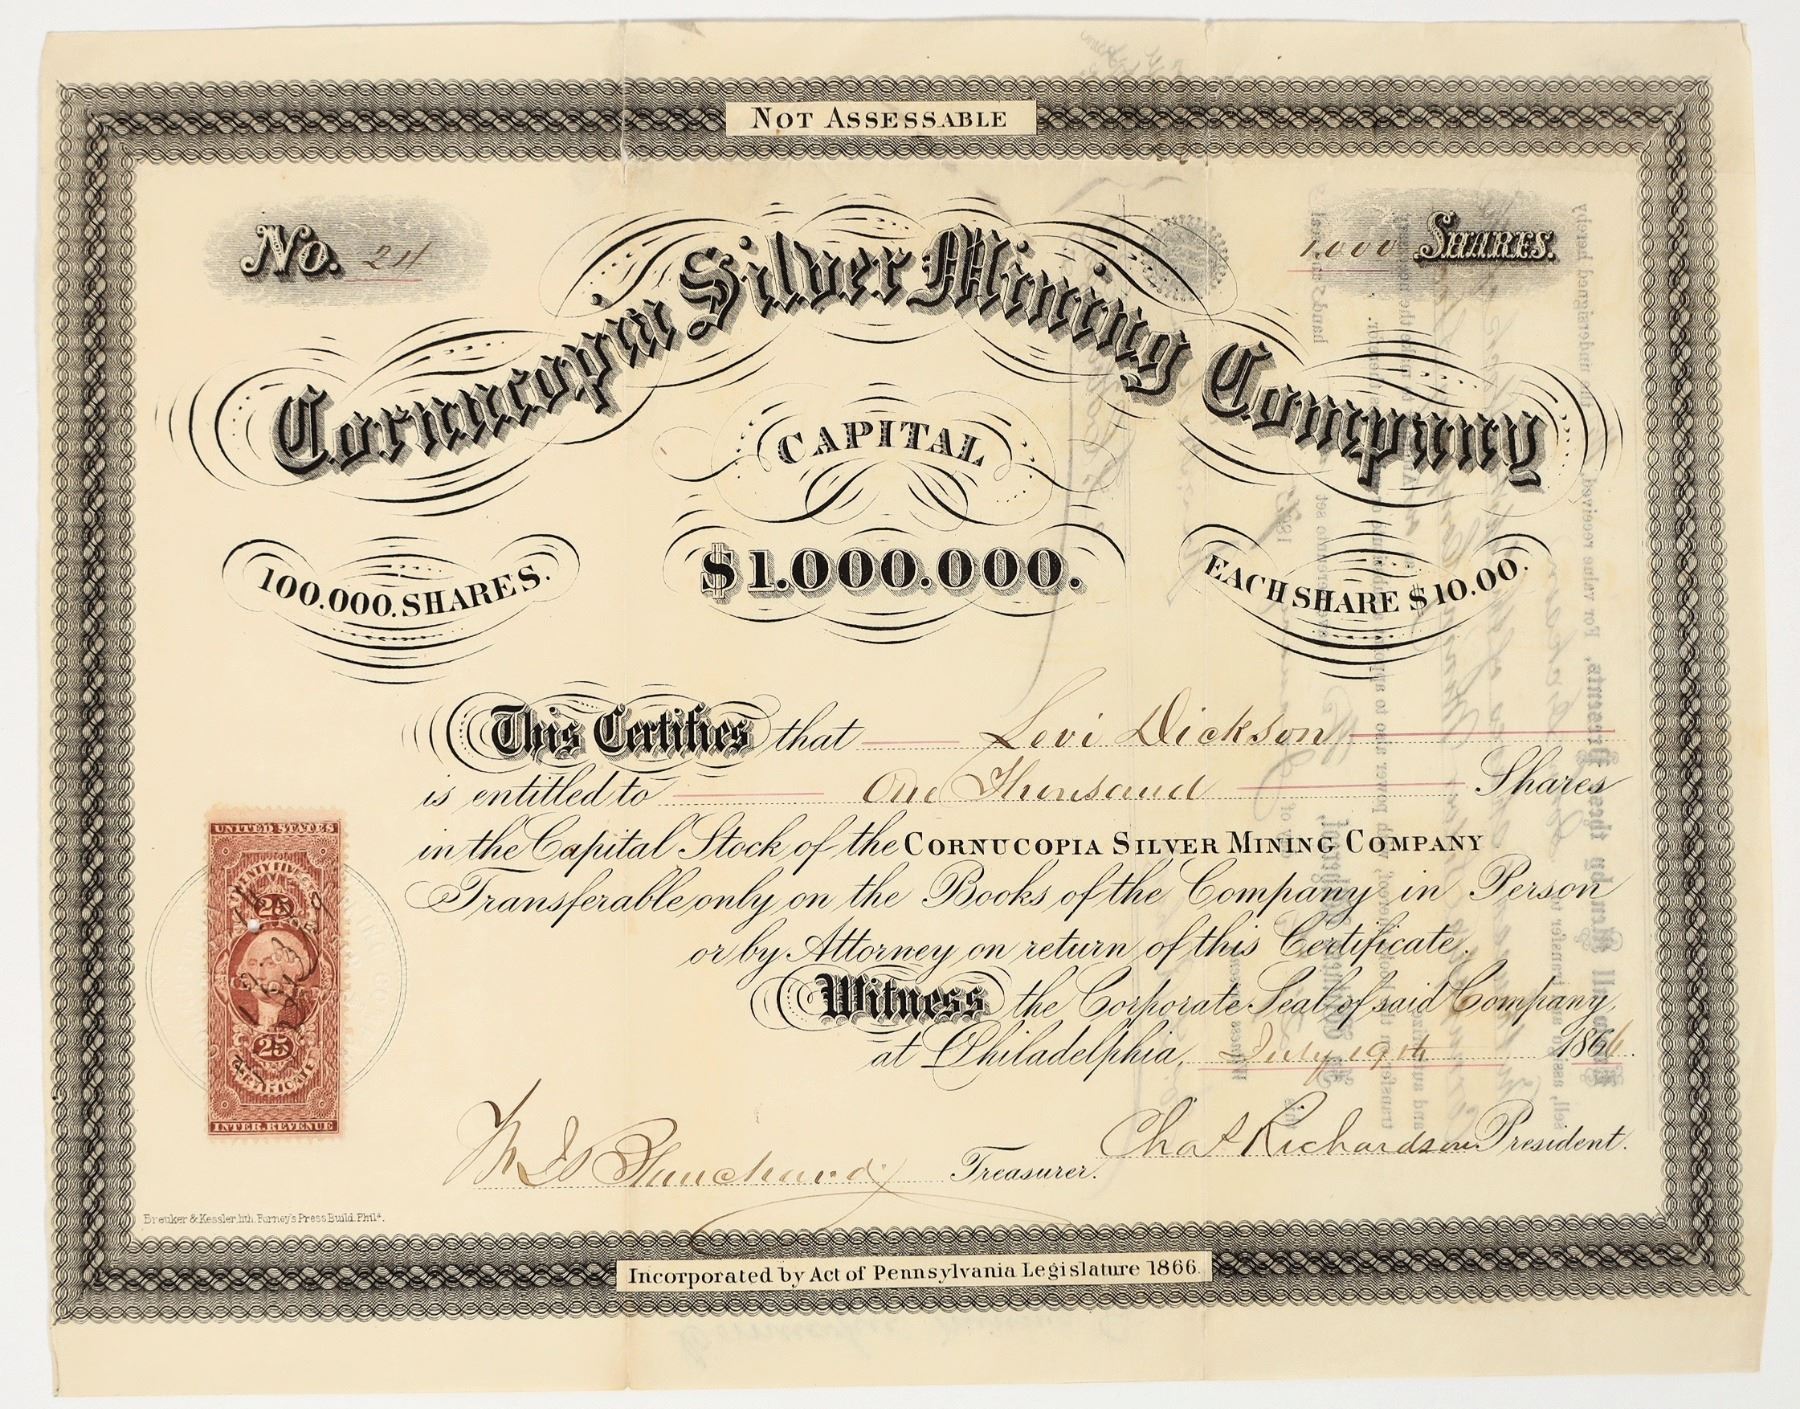 NOT ASSESSABLE
No. 24
1,000 SHARES.
Cornucopia Silver Mining Company
CAPITAL
$1.000.000.
100.000. SHARES.
EACH SHARE $10.00.
This Certifies that Levi Dickson
is entitled to One Thousand Shares
in the Capital Stock of the CORNUCOPIA SILVER MINING COMPANY
Transferable only on the Books of the Company in Person
or by Attorney on return of this Certificate.
Witness the Corporate Seal of said Company
at Philadelphia, July 19th 1866.
UNITED STATES
TWENTY FIVE CENTS
25
25
CERTIFICATE
INTER. REVENUE
Blanchard Treasurer.
Chas Richardson President.
Breuker & Kessler, lith. Forney's Press Build. Phila.
Incorporated by Act of Pennsylvania Legislature 1866.